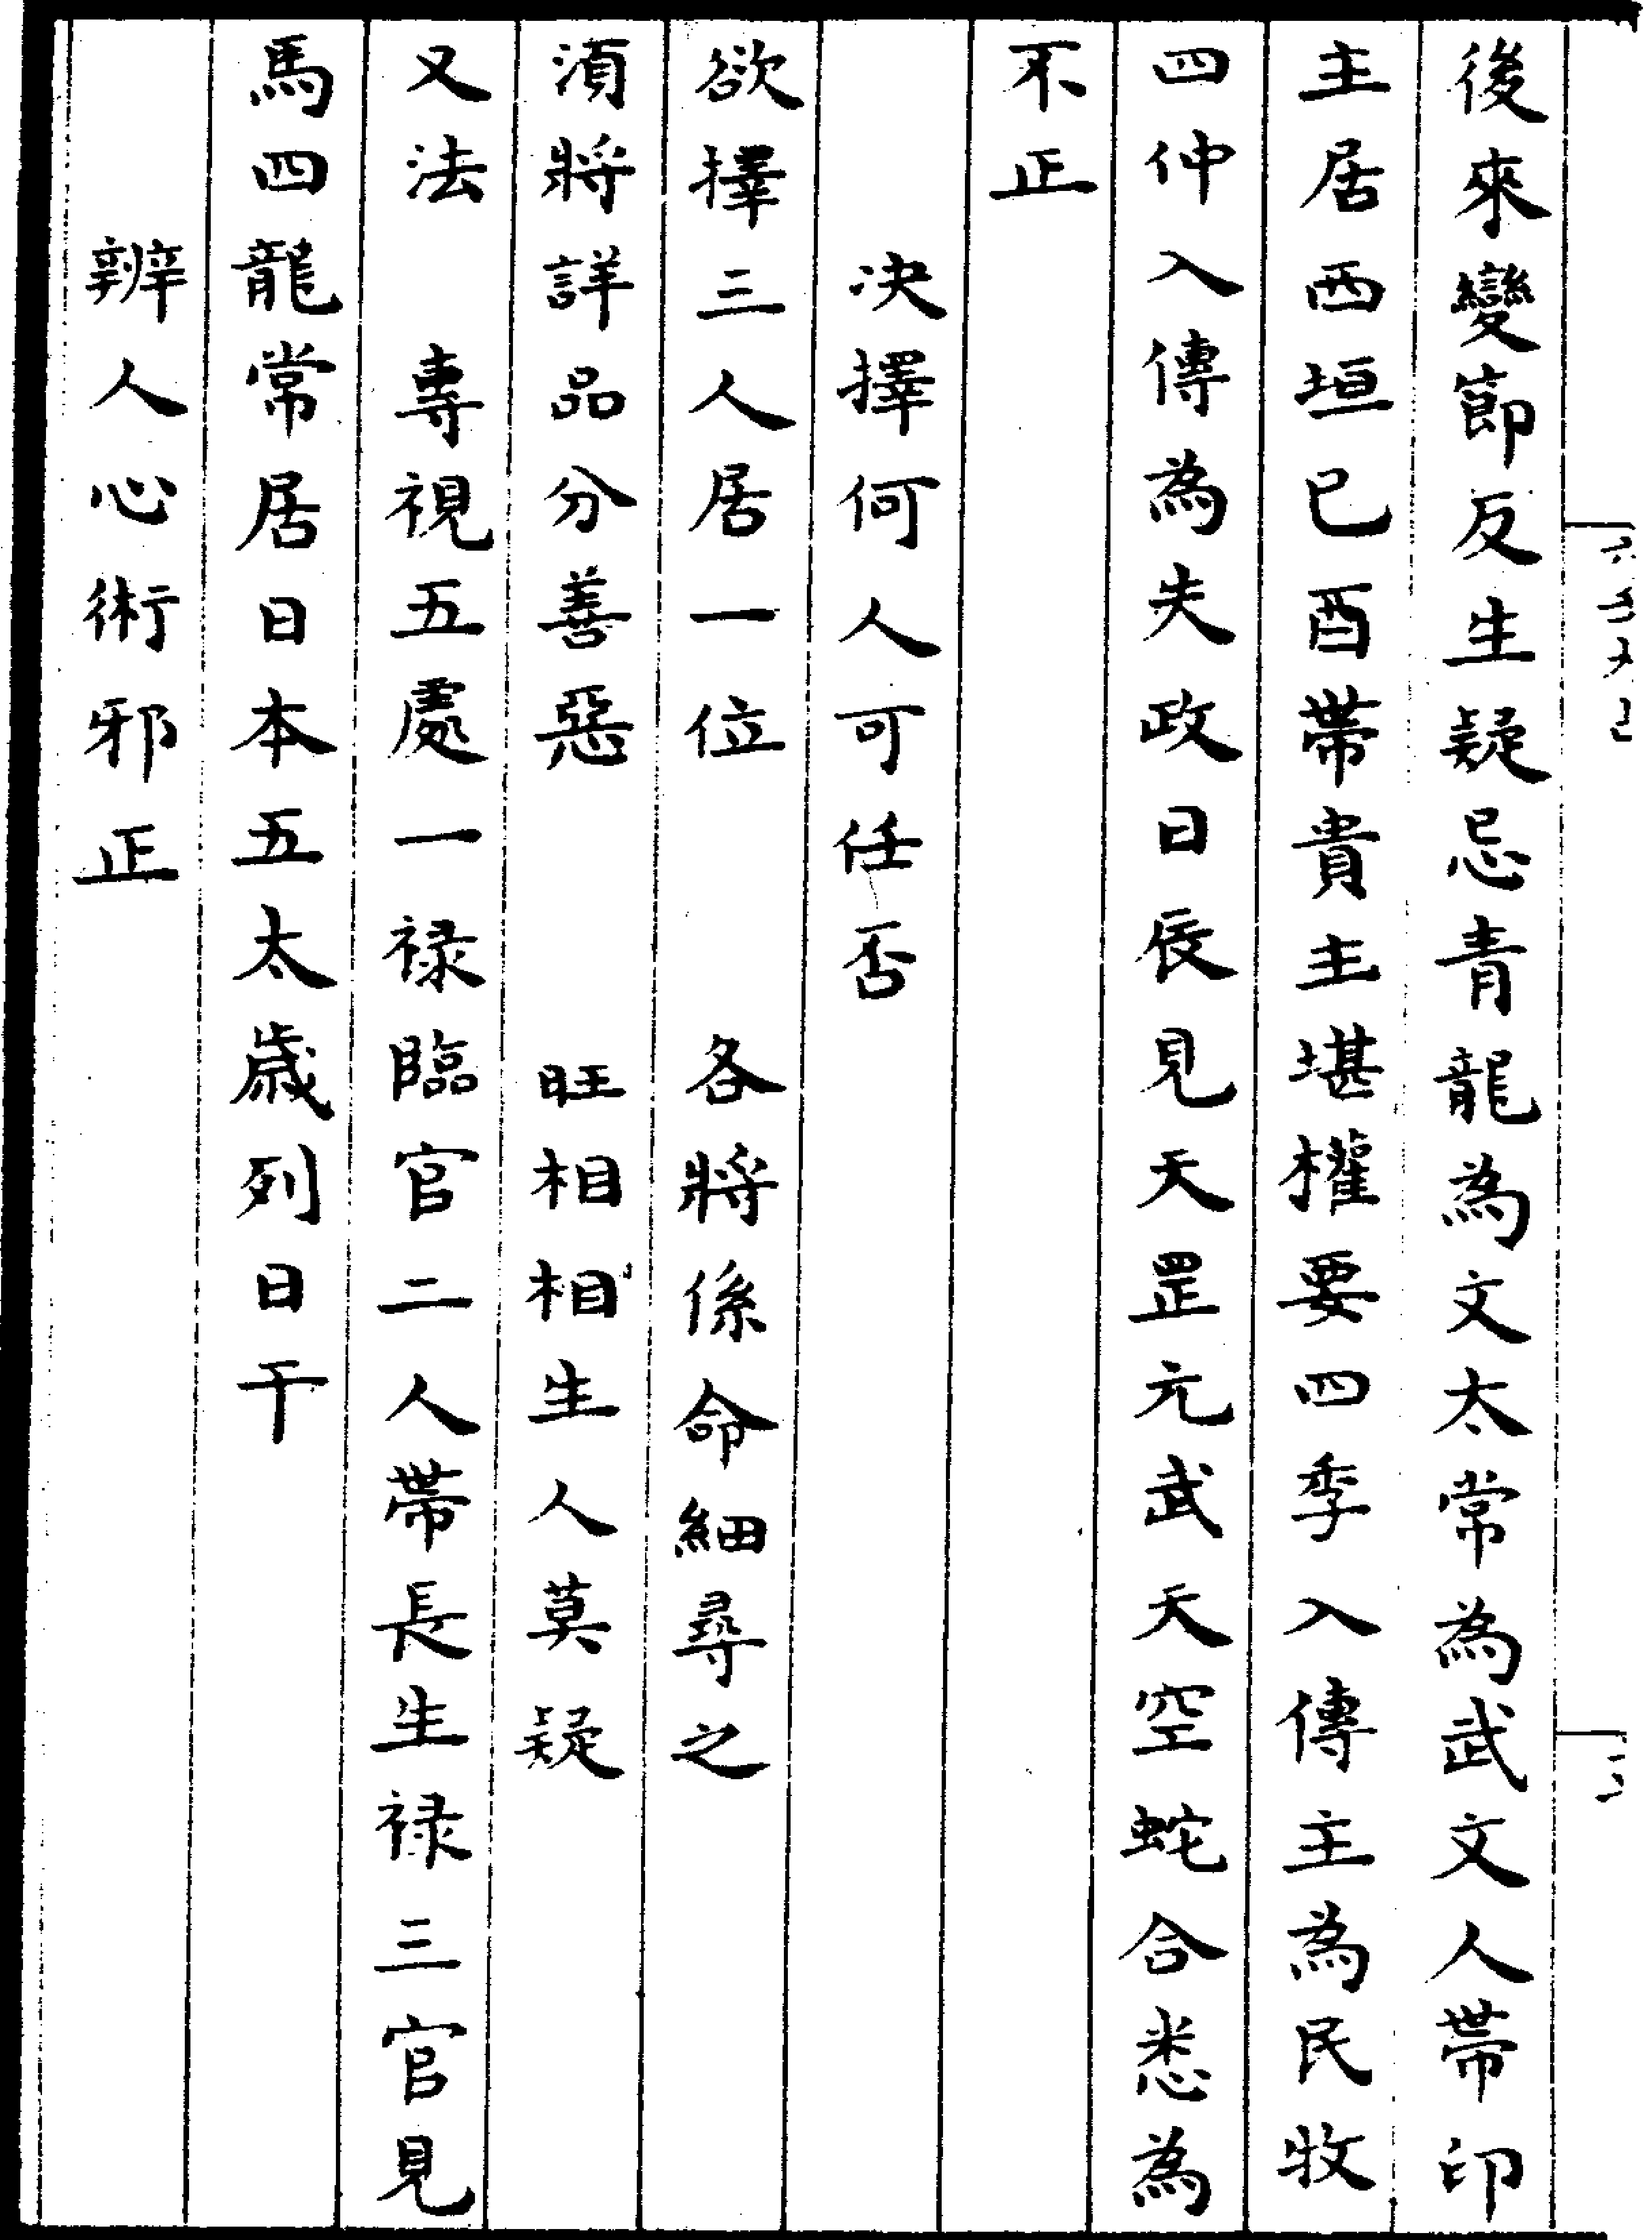 後來變節反生疑忌青龍為文太常為武文人帶印
主居西垣巳酉帶貴主堪權要四季入傳主為民牧
四仲入傳為失政日辰見天罡元武天空蛇合悉為
不正
决擇何人可任否
欲擇三人居一位　各將係命細尋之
湏將詳品分善惡　旺相相生人莫疑
又法　專視五處一禄臨官二人帶長生禄三官見
馬四龍常居日本五太歲列日干
辨人心術邪正